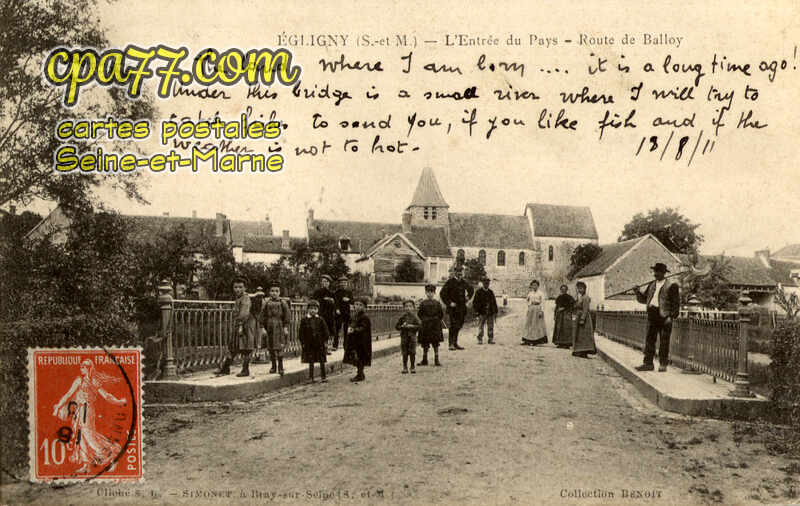 ÉGLIGNY (S.-et M.) — L'Entrée du Pays — Route de Balloy
cpa77.com
where I am born .... it is a long time ago!
under this bridge is a small river where I will try to
cartes postales
to send you, if you like fish and if the
Seine-et-Marne
is not to hot.-
18/8/11
REPUBLIQUE FRANÇAISE
10c
POSTES
Cliché S. G. — SIMONET, à Bray-sur-Seine (S. et-M.)
Collection BENOIT